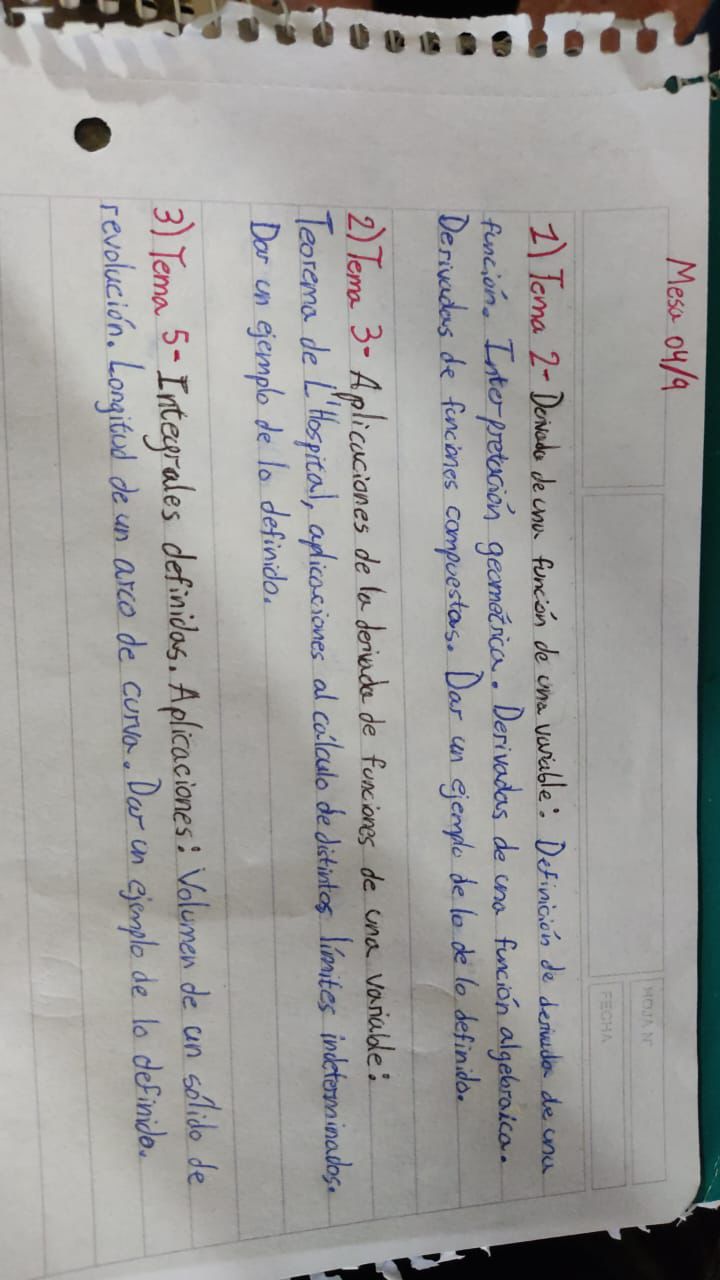 Mesa 04/9
HOJA N°
FECHA
1) Tema 2- Derivada de una función de una variable: Definición de derivada de una
función. Interpretación geométrica. Derivadas de una función algebraica.
Derivadas de funciones compuestas. Dar un ejemplo de lo de lo definido.
2) Tema 3- Aplicaciones de la derivada de funciones de una variable:
Teorema de L'Hospital, aplicaciones al cálculo de distintos límites indeterminados.
Dar un ejemplo de lo definido.
3) Tema 5- Integrales definidas. Aplicaciones: Volumen de un sólido de
revolución. Longitud de un arco de curva. Dar un ejemplo de lo definido.